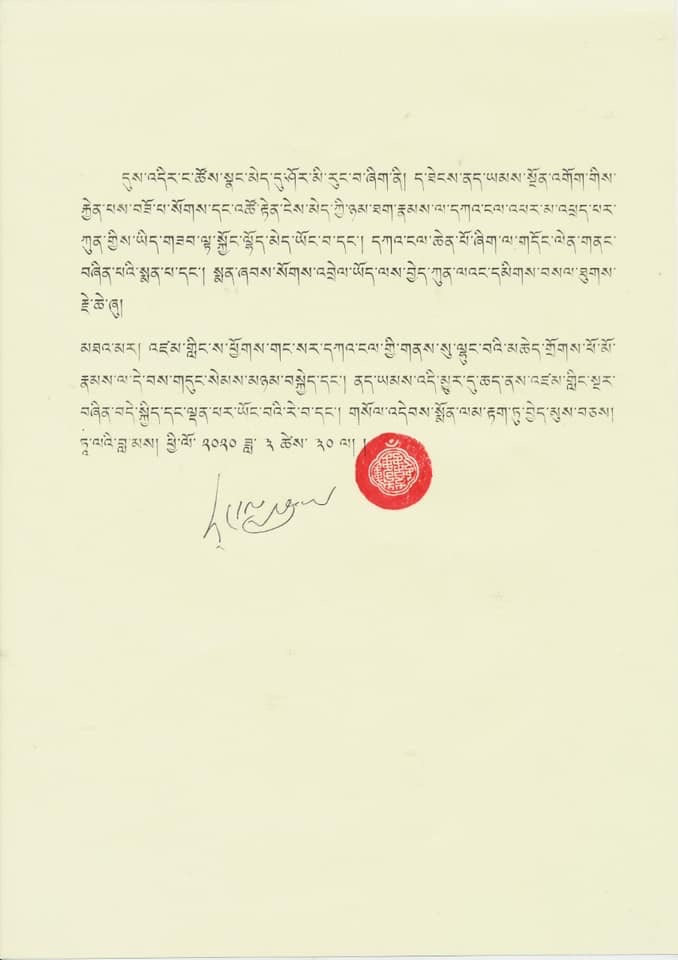 དུས་འདིར་ང་ཚོས་སྣང་མེད་དུ་ཤོར་མི་རུང་བ་ཞིག་ནི། ད་ཐེངས་ནད་ཡམས་སྔོན་འགོག་གིས་
རྐྱེན་པས་བཟོ་པ་སོགས་དང་འཚོ་རྟེན་ངེས་མེད་ཀྱི་ཉམ་ཐག་རྣམས་ལ་དཀའ་ངལ་འཕར་མ་འཕྲད་པར་
ཀུན་གྱིས་ཡིད་གཟབ་ལྟ་སྐྱོང་ལྷོད་མེད་ཡོང་བ་དང་། དཀའ་ངལ་ཆེན་པོ་ཞིག་ལ་གདོང་ལེན་གནང་
བཞིན་པའི་སྨན་པ་དང་། སྨན་ཞབས་སོགས་འབྲེལ་ཡོད་ལས་བྱེད་ཀུན་ལའང་དམིགས་བསལ་ཐུགས་
རྗེ་ཆེ་ཞུ།
མཐའ་མར། འཛམ་གླིང་ས་ཕྱོགས་གང་སར་དཀའ་ངལ་གྱི་གནས་སུ་ལྷུང་བའི་མཆེད་གྲོགས་ཕོ་མོ་
རྣམས་ལ་དེ་བས་གདུང་སེམས་མཉམ་བསྐྱེད་དང་། ནད་ཡམས་འདི་མྱུར་དུ་ཆད་ནས་འཛམ་གླིང་སྔར་
བཞིན་བདེ་སྐྱིད་དང་ལྡན་པར་ཡོང་བའི་རེ་བ་དང་། གསོལ་འདེབས་སྨོན་ལམ་རྟག་ཏུ་བྱེད་མུས་བཅས།
ཏཱ་ལའི་བླ་མས། ཕྱི་ལོ་ ༢༠༢༠ ཟླ་ ༣ ཚེས་ ༣༠ ལ། །